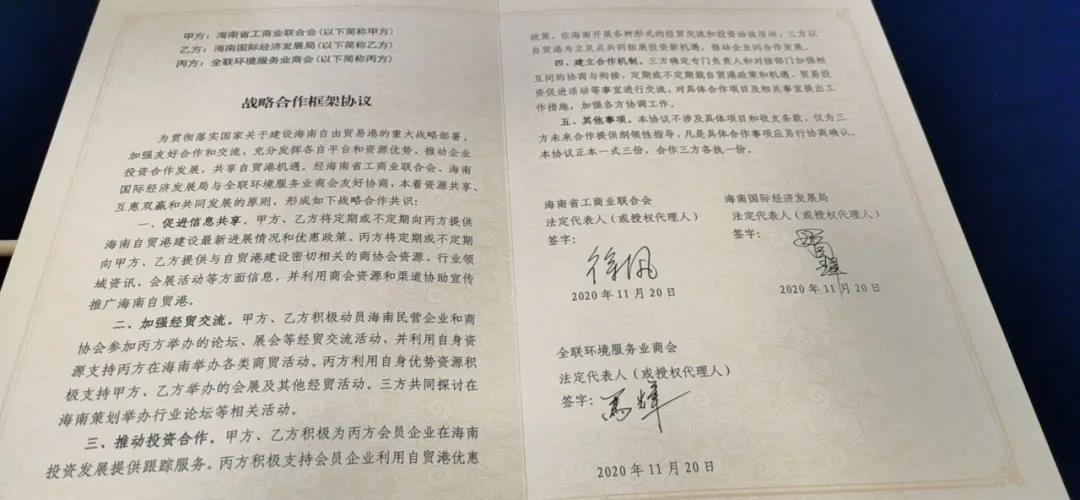 甲方：海南省工商业联合会(以下简称甲方)
乙方：海南国际经济发展局(以下简称乙方)
丙方：全联环境服务业商会(以下简称丙方)
战略合作框架协议
为贯彻落实国家关于建设海南自由贸易港的重大战略部署，
加强友好合作和交流，充分发挥各自平台和资源优势，推动企业
投资合作发展，共享自贸港机遇。经海南省工商业联合会、海南
国际经济发展局与全联环境服务业商会友好协商，本着资源共享、
互惠双赢和共同发展的原则，形成如下战略合作共识：
一、促进信息共享。甲方、乙方将定期或不定期向丙方提供
海南自贸港建设最新进展情况和优惠政策。丙方将定期或不定期
向甲方、乙方提供与自贸港建设密切相关的商协会资源、行业领
域资讯、会展活动等方面信息，并利用商会资源和渠道协助宣传
推广海南自贸港。
二、加强经贸交流。甲方、乙方积极动员海南民营企业和商
协会参加丙方举办的论坛、展会等经贸交流活动，并利用自身资
源支持丙方在海南举办各类商贸活动。丙方利用自身优势资源积
极支持甲方、乙方举办的会展及其他经贸活动。三方共同探讨在
海南策划举办行业论坛等相关活动。
三、推动投资合作。甲方、乙方积极为丙方会员企业在海南
投资发展提供跟踪服务。丙方积极支持会员企业利用自贸港优惠
政策，在海南开展各种形式的经贸交流和投资洽谈活动，三方以
自贸港为立足点共同拓展投资新机遇，推动企业间合作发展。
四、建立合作机制。三方确定专门负责人和对接部门加强相
互间的协商与衔接，定期或不定期就自贸港政策和机遇、贸易投
资促进活动等事宜进行交流，对具体合作项目及相关事宜提出工
作措施，加强各方协调工作。
五、其他事项。本协议不涉及具体项目和收支条款，仅为三
方未来合作提供纲领性指导，凡是具体合作事项应另行协商确认。
本协议正本一式三份，合作三方各执一份。
海南省工商业联合会
法定代表人（或授权代理人）
签字：
徐佩
2020年11月20日
海南国际经济发展局
法定代表人（或授权代理人）
签字：
2020年11月20日
全联环境服务业商会
法定代表人（或授权代理人）
签字：马辉
2020年11月20日